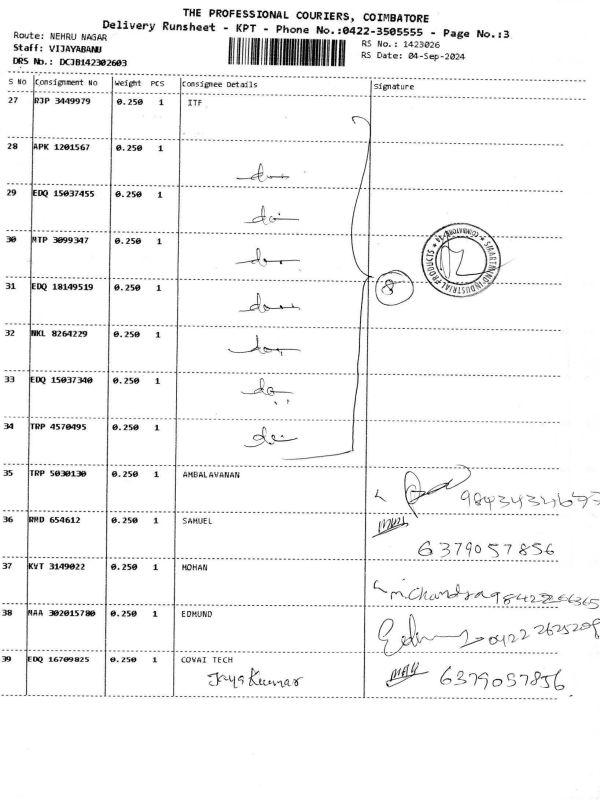 THE PROFESSIONAL COURIERS, COIMBATORE
Delivery Runsheet - KPT - Phone No.:0422-3505555 - Page No.:3
Route: NEHRU NAGAR
RS No.: 1423026
Staff: VIJAYABANU
RS Date: 04-Sep-2024
DRS No.: DCJB142302603
S No Consignment No Weight PCS Consignee Details Signature
27 RJP 3449979 0.250 1 ITF
28 APK 1201567 0.250 1
do
29 EDQ 15037455 0.250 1
do
30 MTP 3099347 0.250 1
do
31 EDQ 18149519 0.250 1
do
8
SMARTMIND INDUSTRIAL PRODUCTS ★ COIMBATORE
32 NKL 8264229 0.250 1
do
33 EDQ 15037340 0.250 1
do
34 TRP 4570495 0.250 1
do
35 TRP 5030130 0.250 1 AMBALAVANAN
36 RMD 654612 0.250 1 SAMUEL
6379057856
37 KVT 3149022 0.250 1 MOHAN
m.Chandra
38 MAA 302015780 0.250 1 EDMUND
0422 2625208
39 EDQ 16709825 0.250 1 COVAI TECH
Jaya Kumar 6379057856